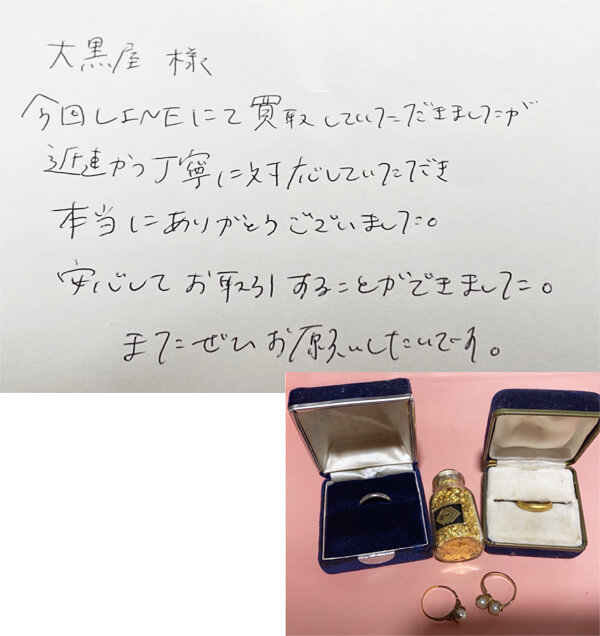 大黒屋 様
今回LINEにて買取していただきましたが
迅速かつ丁寧に対応していただき
本当にありがとうございました。
安心してお取引することができました。
またぜひお願いしたいです。